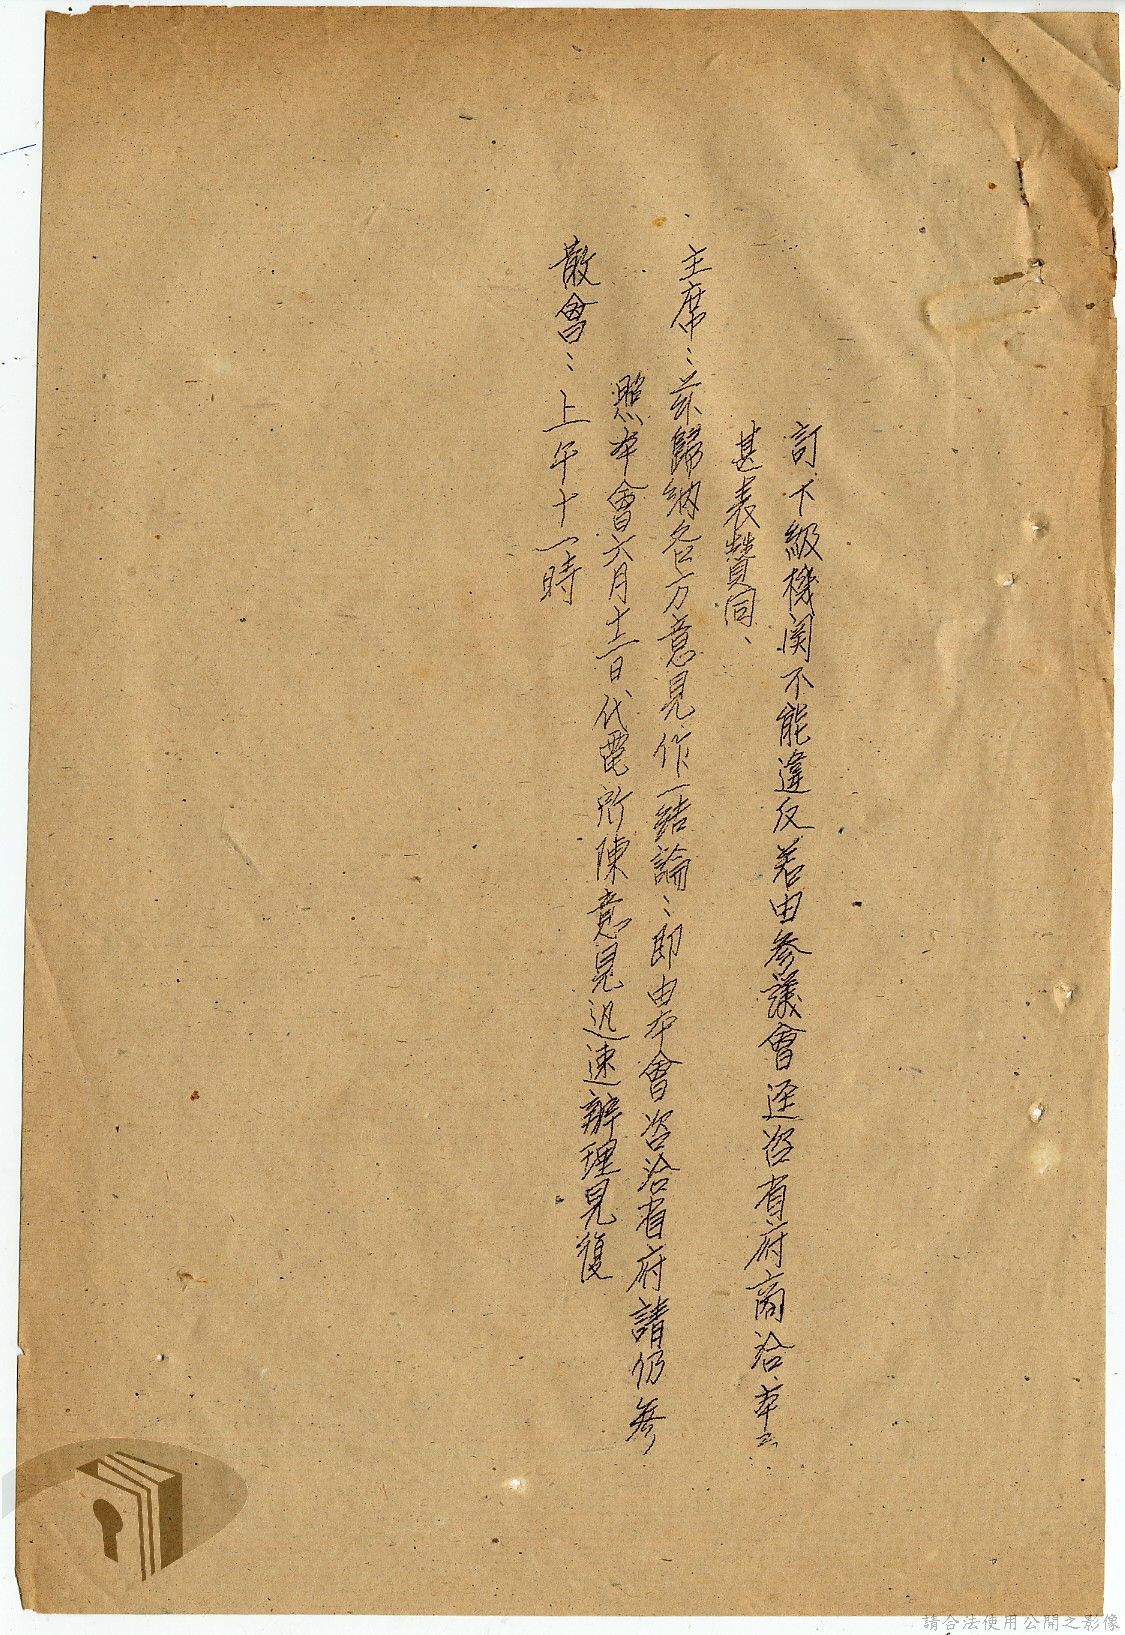 訂下級機関不能違反若由參議會逕咨省府商洽、本
甚表贊同、
主席：茲歸納各方意見作一結論：即由本會咨洽省府請仍參
照本會六月十二日代電所陳意見迅速辦理見復
散會：上午十一時
請合法使用公開之影像